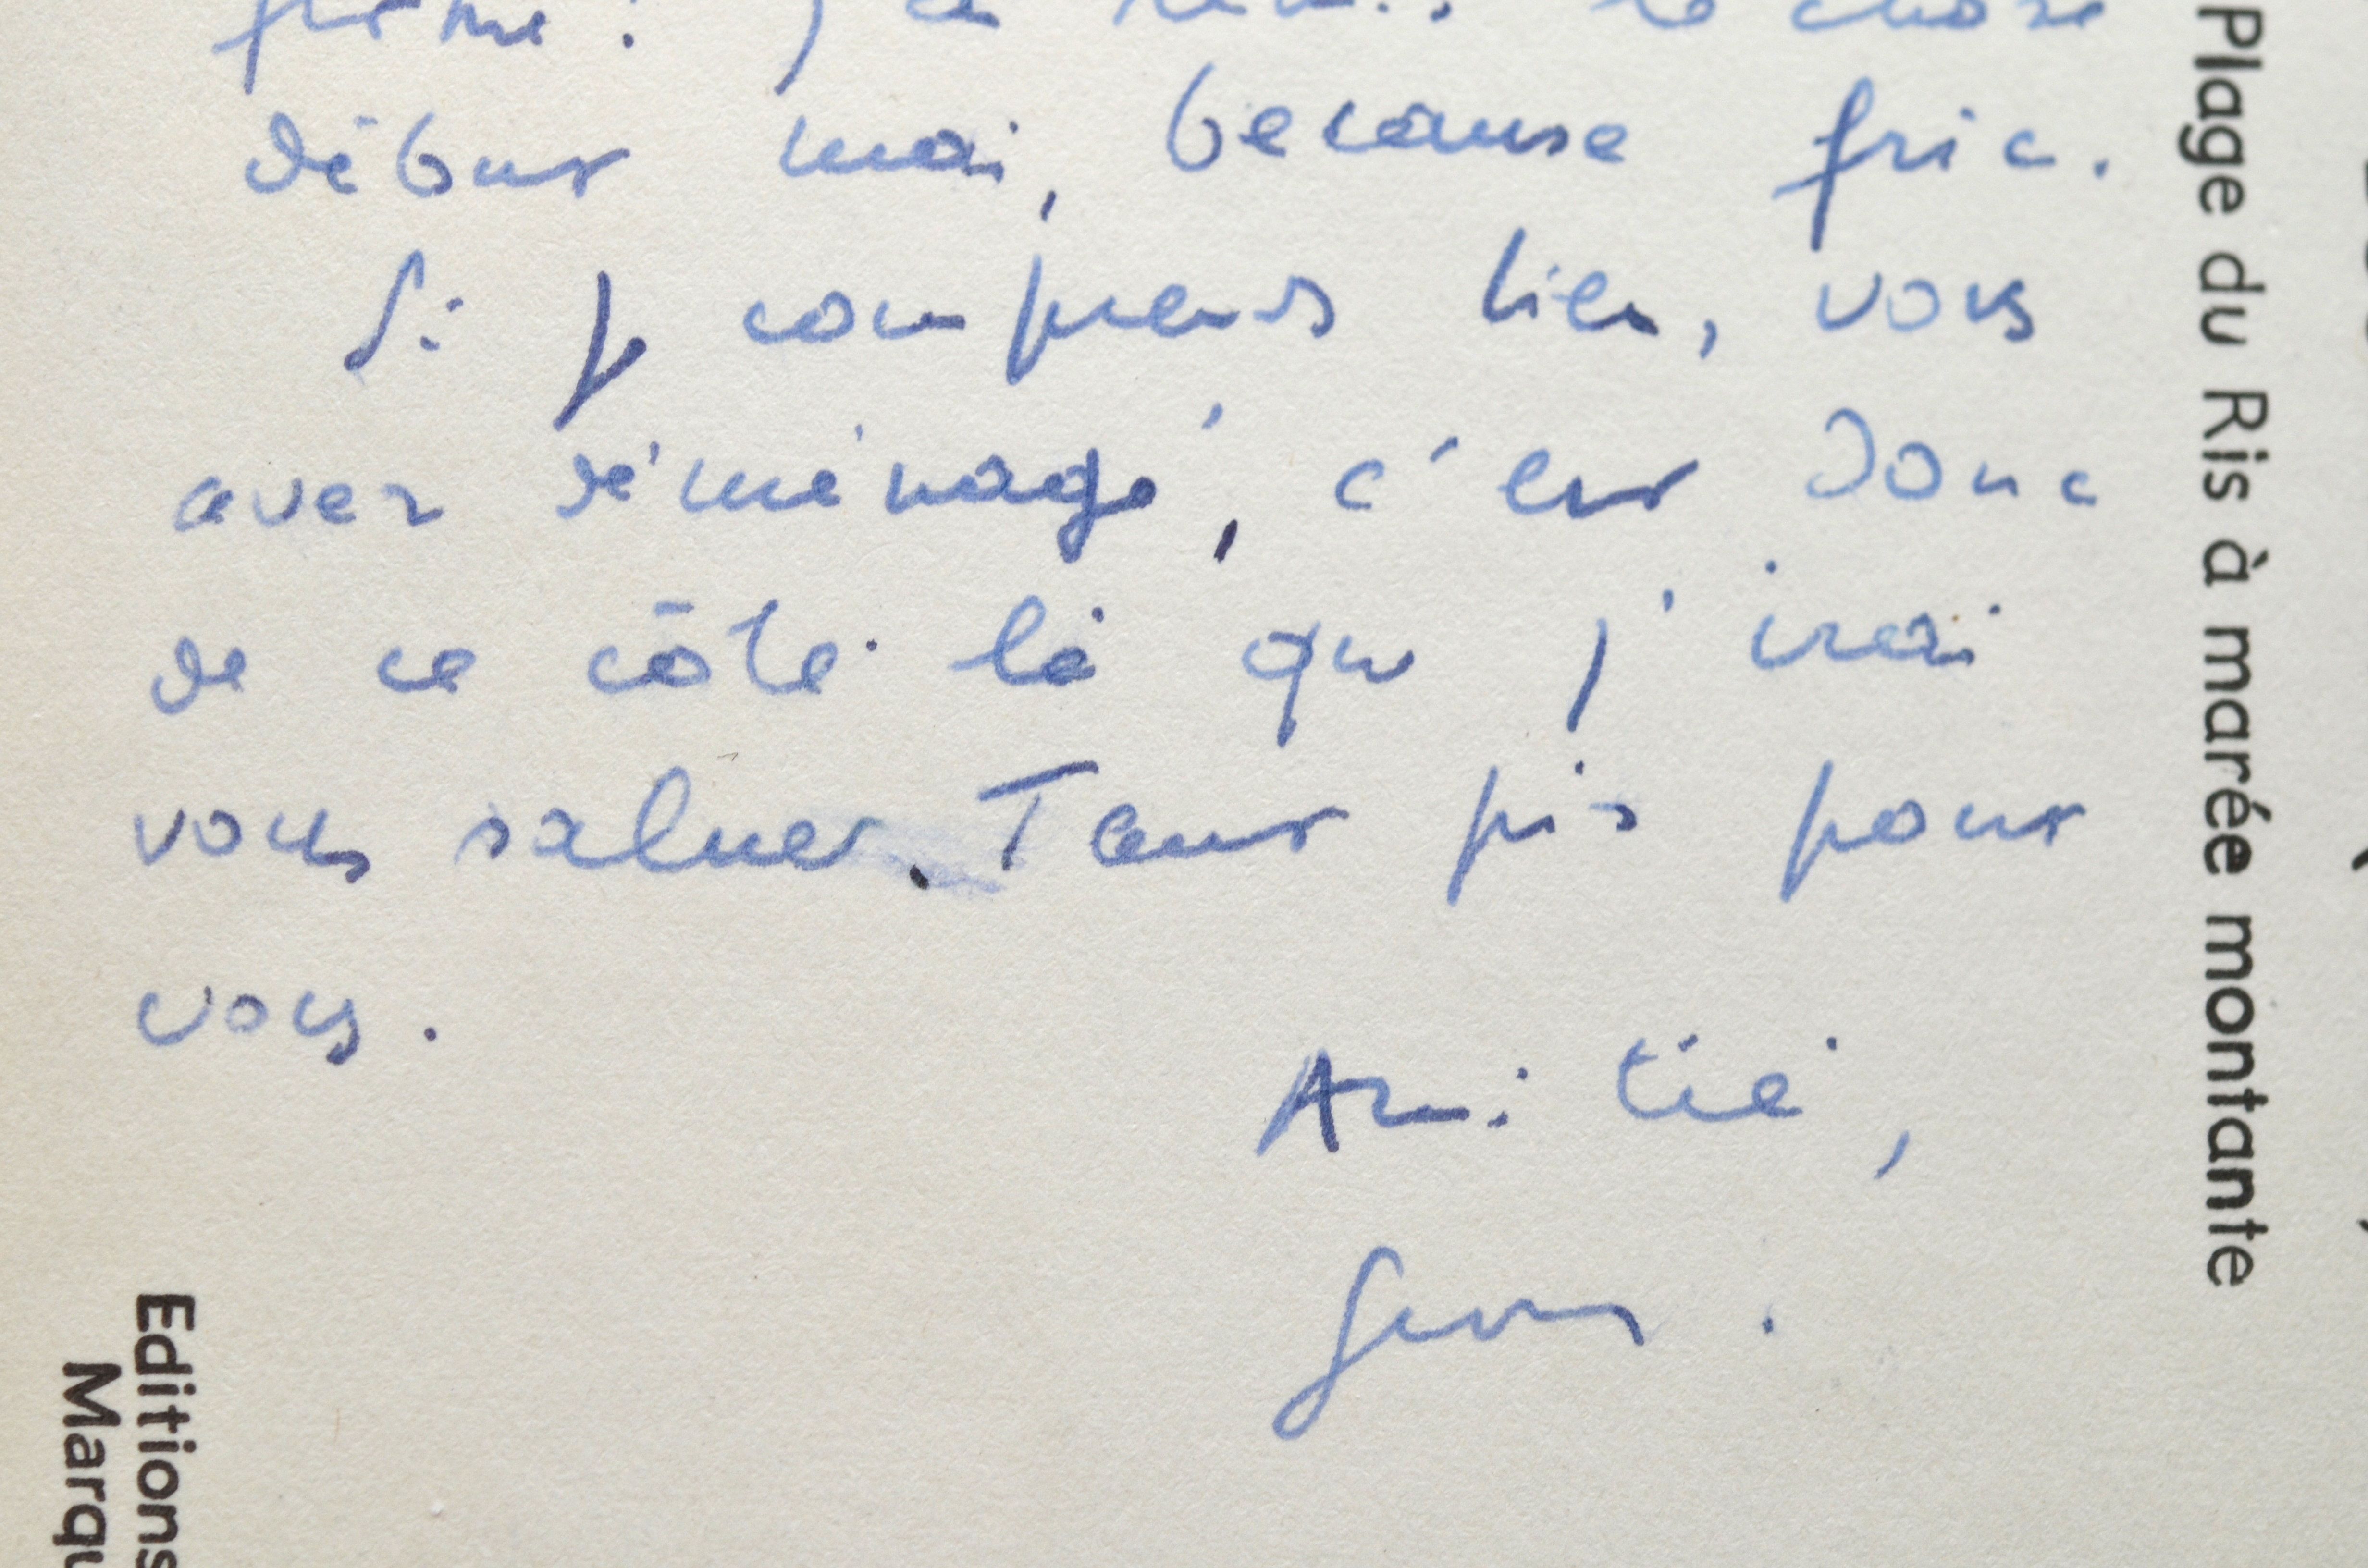 chose
début mai, because fric.
Si je comprends bien, vous
avez déménagé, c'est donc
de ce côté là que j'irai
vous saluer. Tant pis pour
vous.
Amitié,
Plage du Ris à marée montante
Editions
Marqu